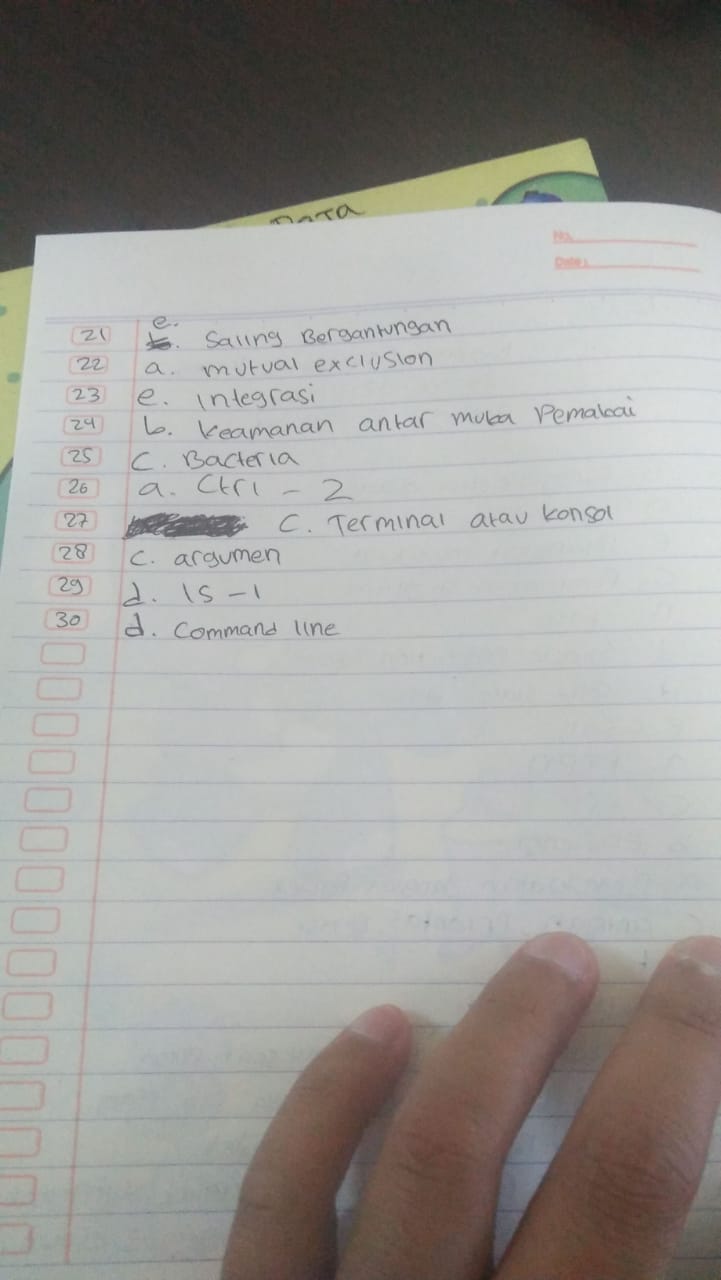 DATA
No.
Date:
21 e. Saling Bergantungan
22 a. mutual exclusion
23 e. Integrasi
24 b. Keamanan antar muka Pemakai
25 C. Bacteria
26 a. Ctrl - 2
27 C. Terminal atau konsol
28 c. argumen
29 d. ls -l
30 d. Command line